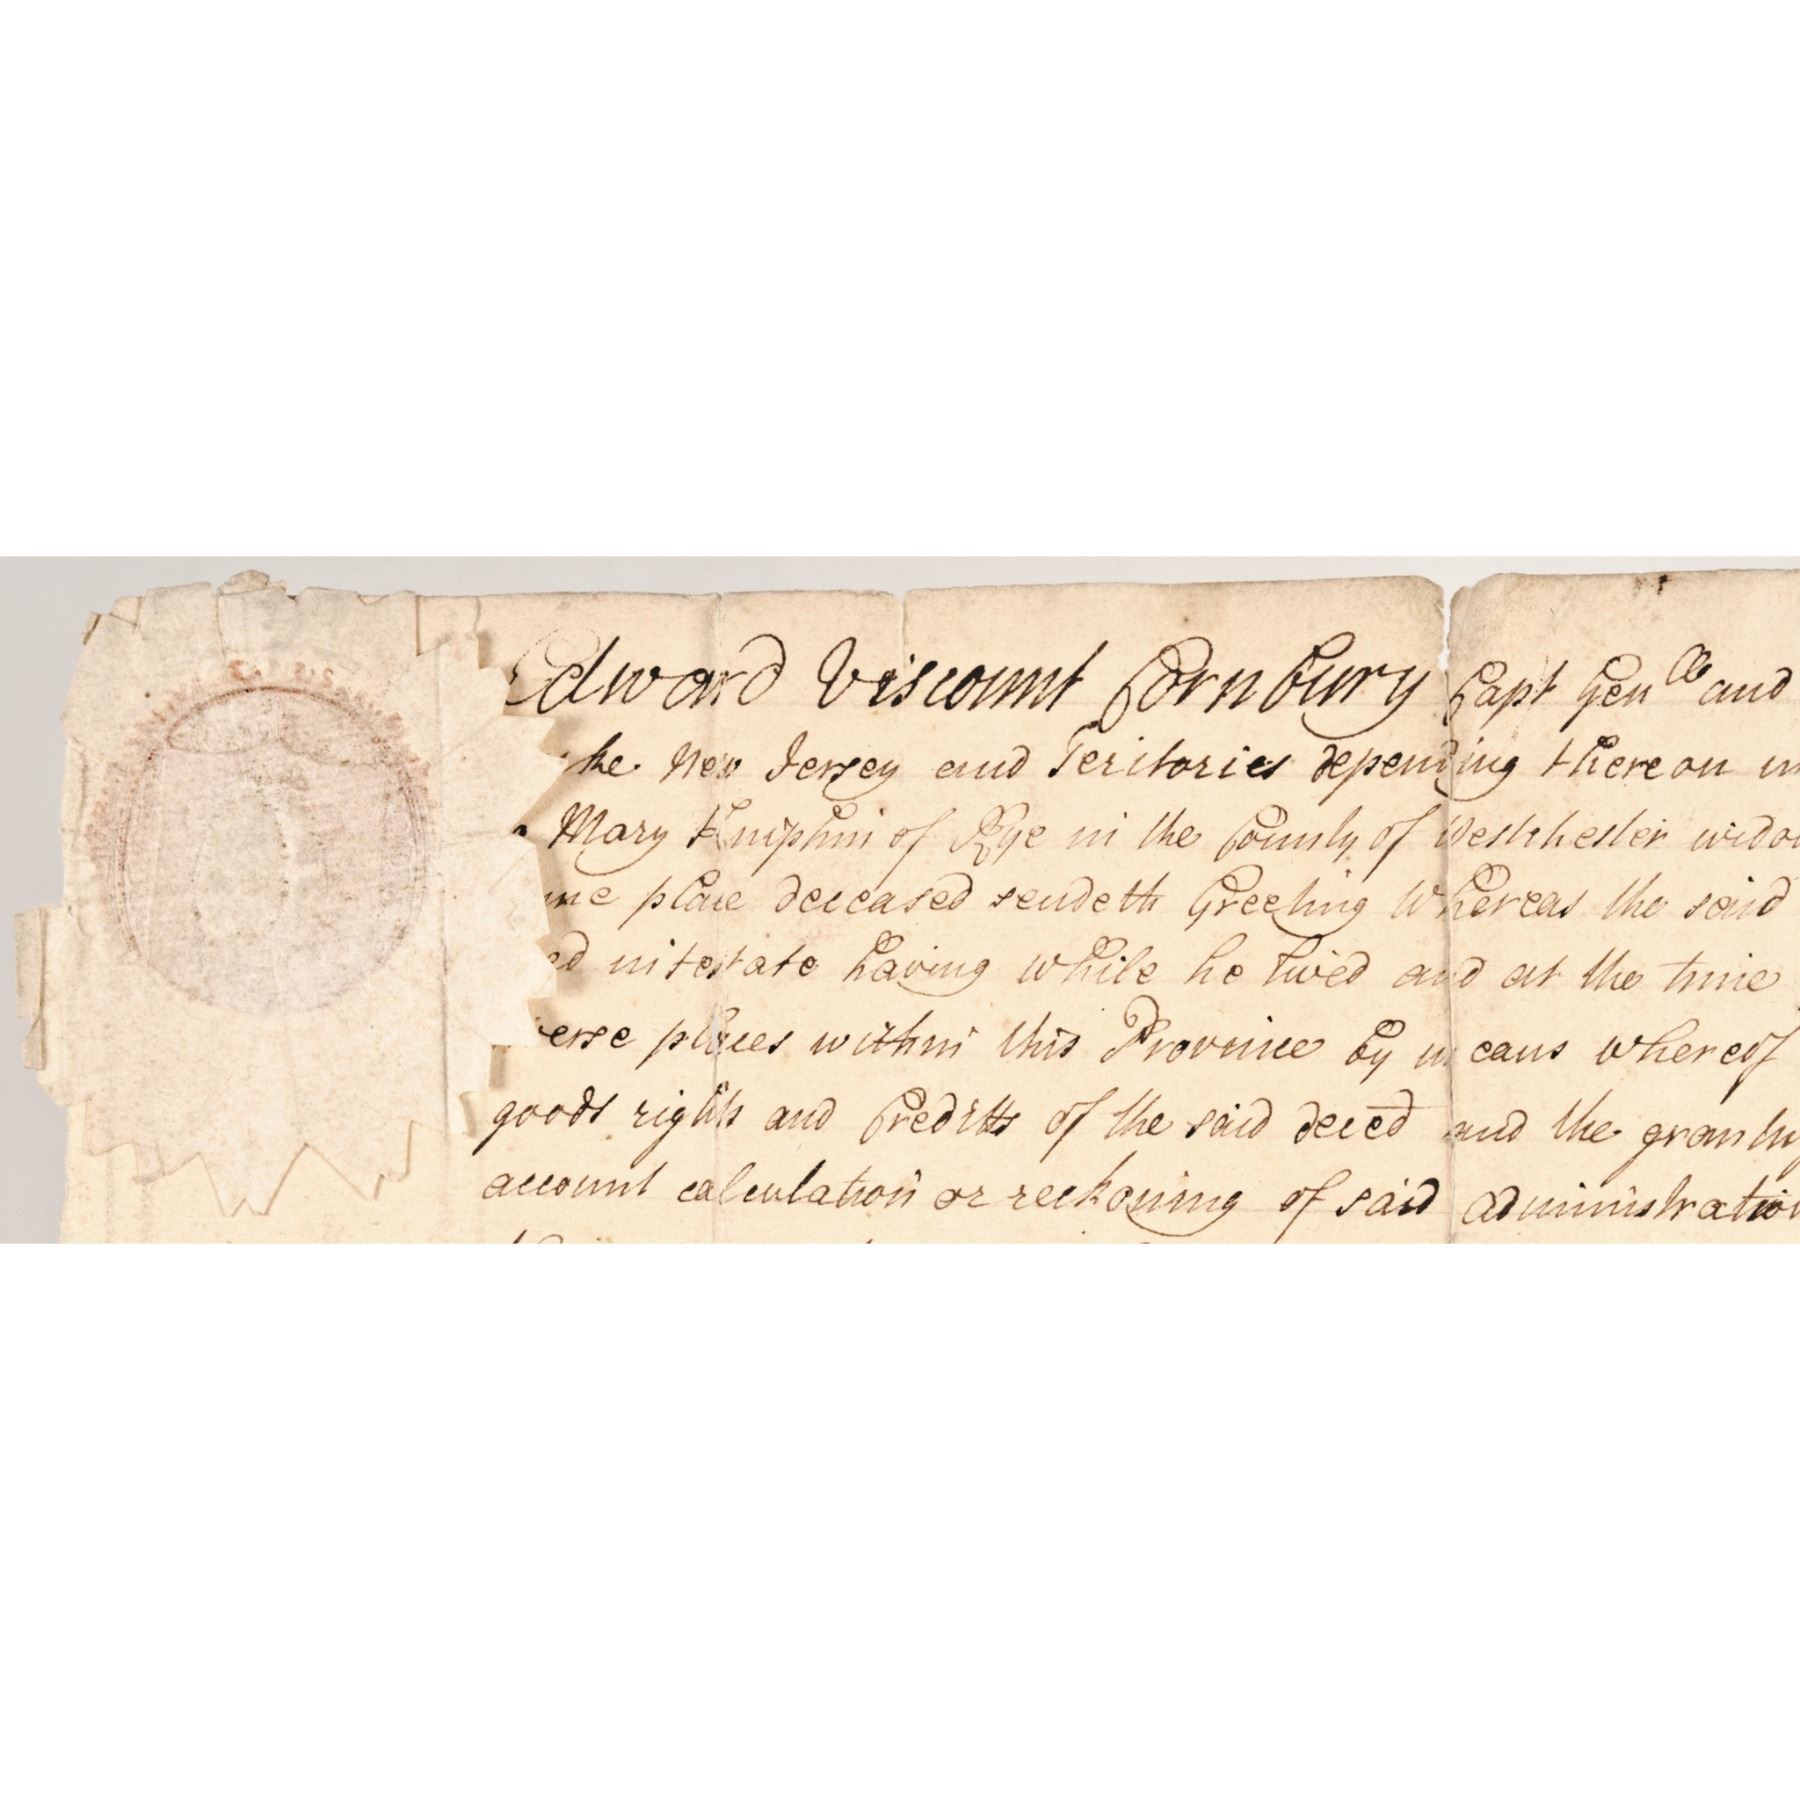 Edward Viscount Cornbury Capt Genll and
he New Jersey and Teritories depending thereon in
Mary Kniphin of Rye in the County of Westchester widow
me place deceased sendeth Greeting Whereas the said
ed intestate having while he lived and at the time
verse places within this Province by means whereof
goods rights and Creditts of the said deced and the granting
account calculation or reckoning of said administration